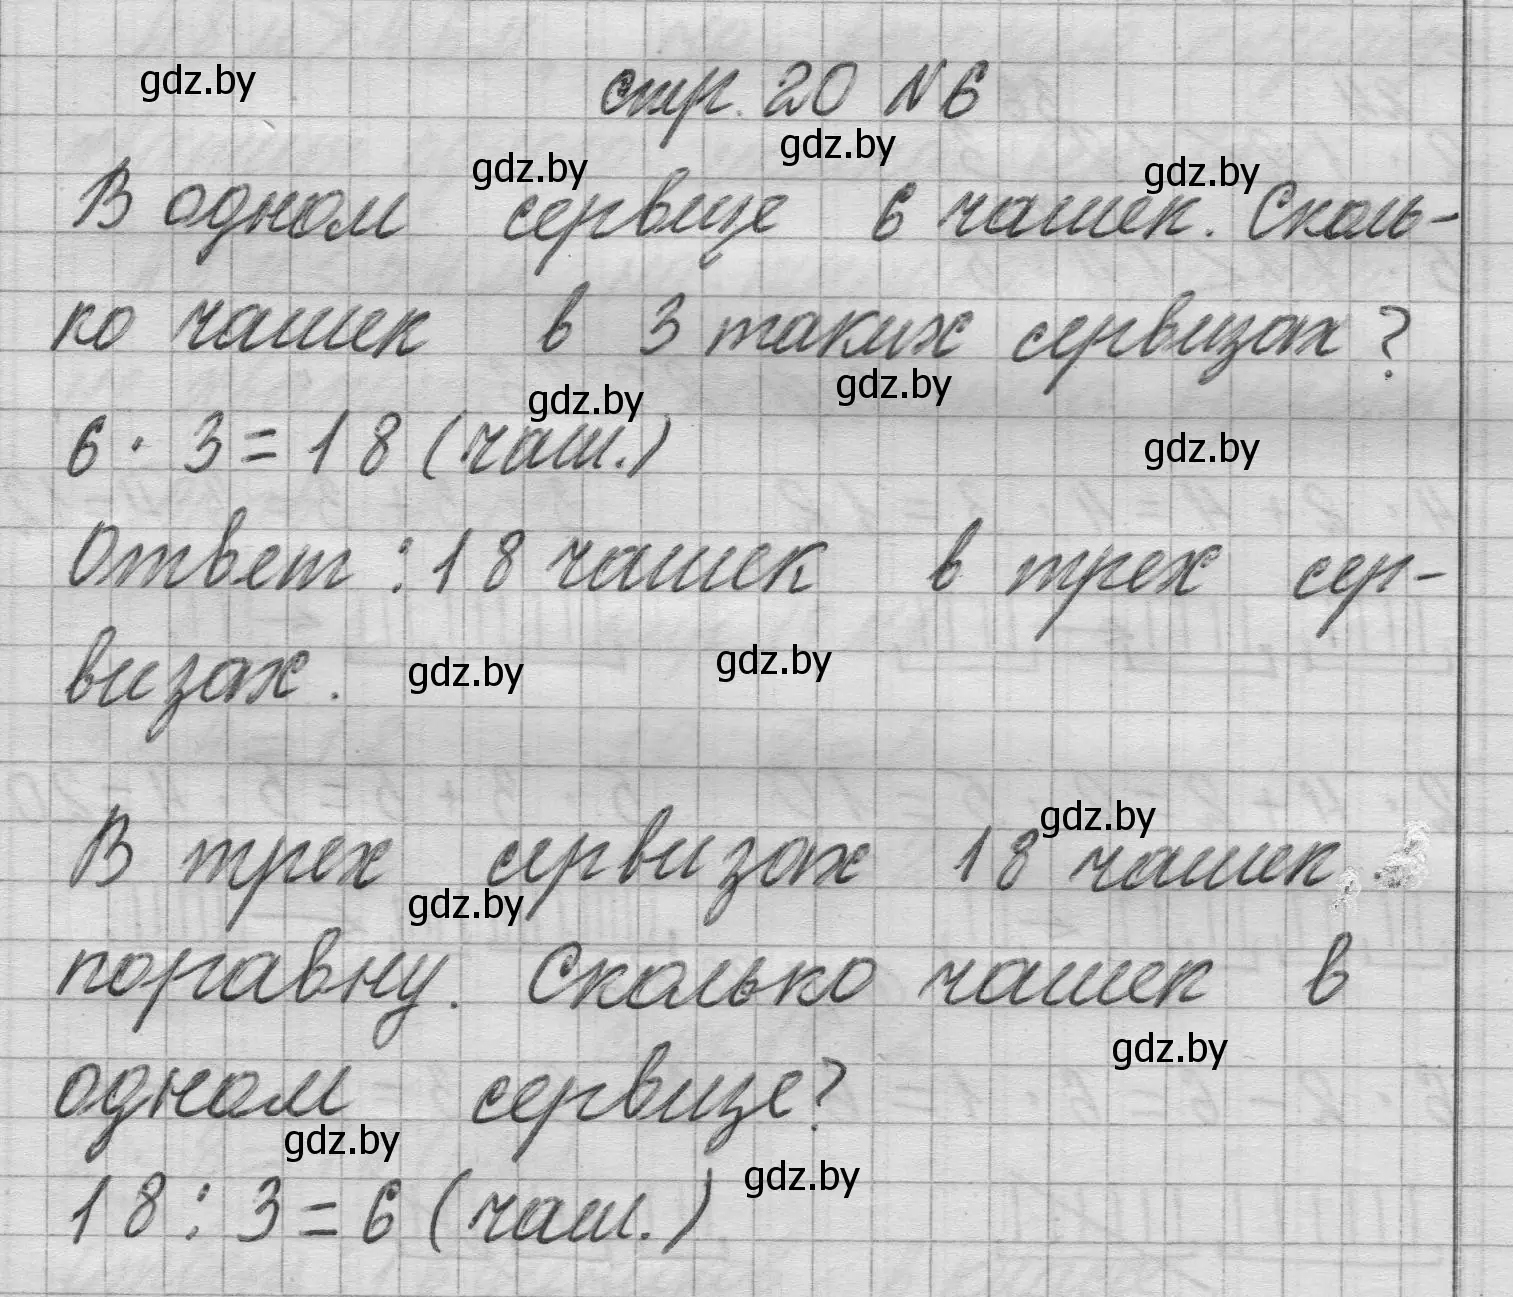 gdz.by
стр. 20 N 6
gdz.by gdz.by gdz.by
В одном сервизе 6 чашек. Сколь-
ко чашек в 3 таких сервизах?
gdz.by gdz.by
6 · 3 = 18 (чаш.) gdz.by
Ответ : 18 чашек в трех сер-
визах. gdz.by gdz.by
gdz.by
В трех сервизах 18 чашек
gdz.by
поравну. Сколько чашек в
gdz.by
одном сервизе?
gdz.by gdz.by
18 : 3 = 6 (чаш.)